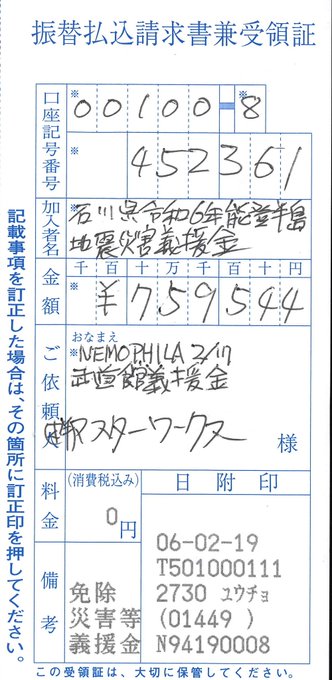 振替払込請求書兼受領証
口座記号番号
※
00100-8
※
452361
加入者名
※
石川県令和6年能登半島
地震災害義援金
金額
千百十万千百十円
※
¥759544
ご依頼人
おなまえ
※NEMOPHILA 2/17
武道館義援金
スターワークス
様
料金
(消費税込み)
0円
日附印
06-02-19
T501000111
2730 ユウチョ
(01449 )
N94190008
備考
免除
災害等
義援金
記載事項を訂正した場合は、その箇所に訂正印を押してください。
この受領証は、大切に保管してください。